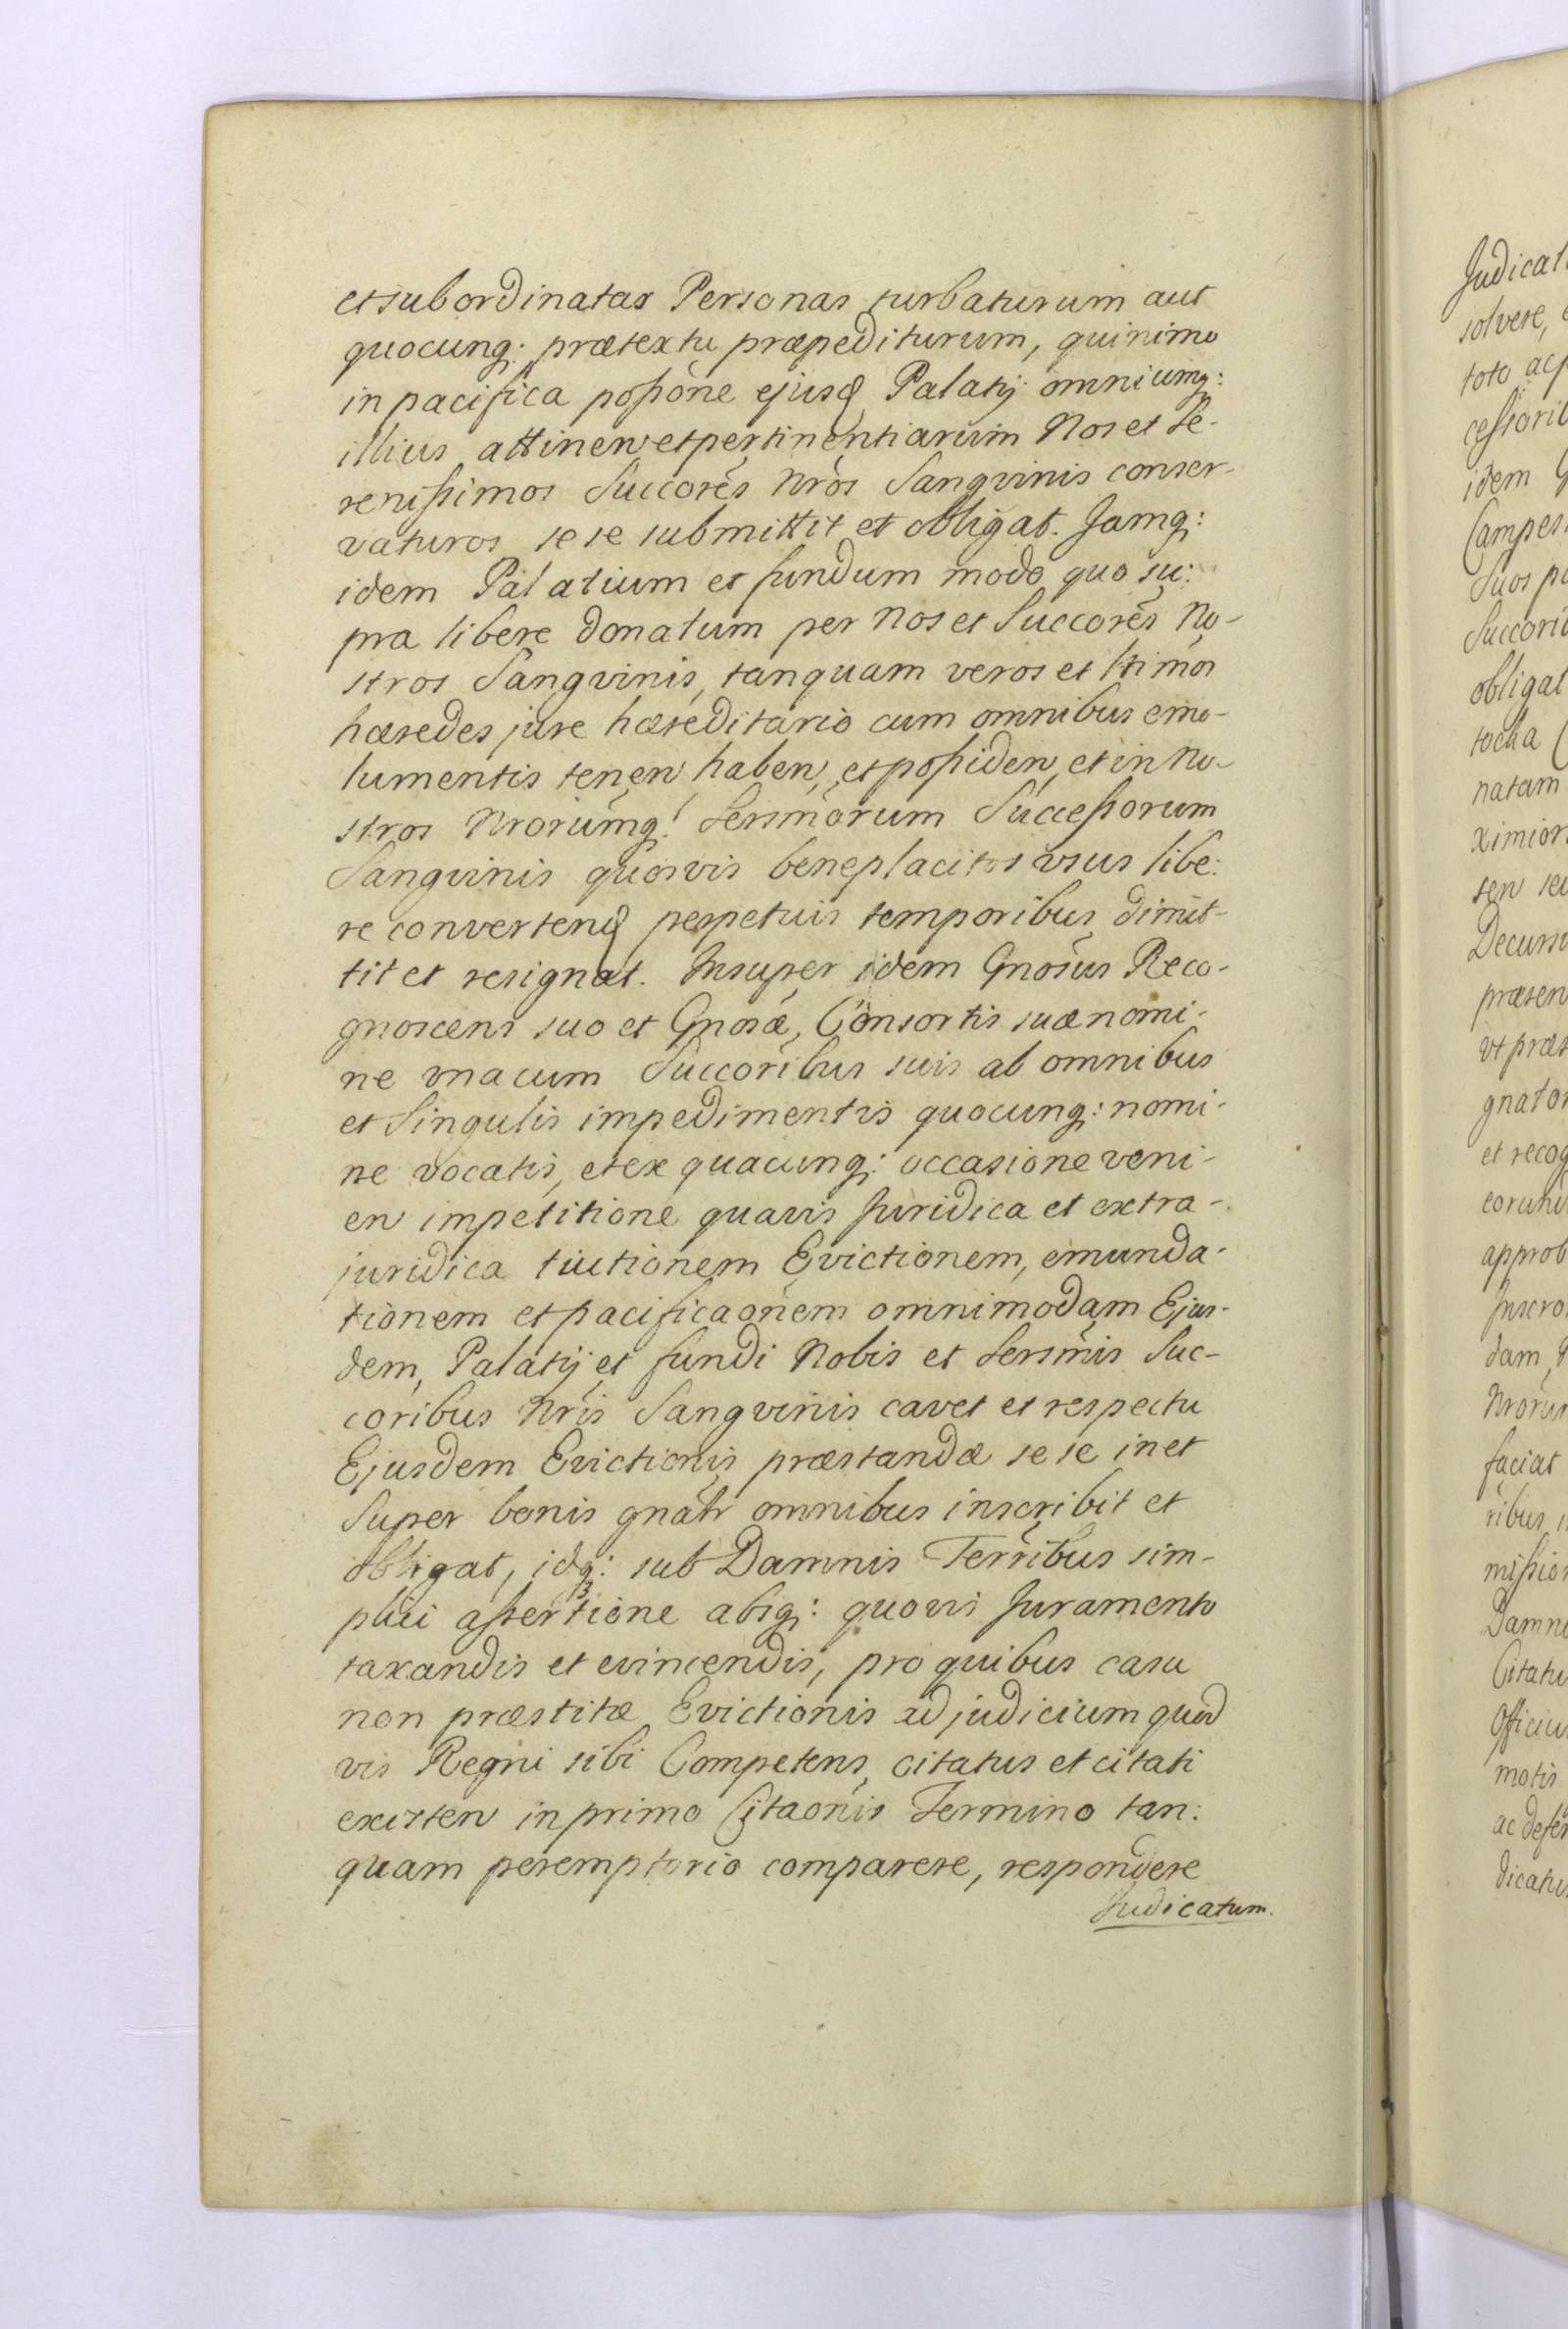 et subordinatas Personas turbaturum aut
quocunq: prætextu præpediturum, quinimo
in pacifica poßõne ejusd Palatij omniumq:
illius attinen et pertinentiarum Nos et Se-
renißimos Succorẽs Nrõs Sangvinis conser-
vaturos se se submittit et obligat. Jamq:
idem Palatium et fundum modo quo su:
pra libere donatum per Nos et Succorẽs No-
stros Sangvinis, tanquam veros et ltimos
hæredes jure hæreditario cum omnibus emo-
lumentis tenen, haben, et poßiden, et in No-
stros Nrorũmq: Sersmõrum Succeßorum
Sangvinis quosvis beneplacitos usus libe:
re convertend perpetuis temporibus dimit-
tit et resignat. Insuper idem Gnosus Reco-
gnoscens suo et Gnosæ, Consortis suæ nomi-
ne una cum Succoribus suis ab omnibus
et Singulis impedimentis quocunq: nomi-
ne vocatis, et ex quacunq: occasione veni-
en impetitione quavis Juridica et extra-
juridica tiutionem Evictionem, emunda-
tionem et pacificaoñem omnimodam Ejus-
dem, Palatij et fundi Nobis et Sersmis Suc-
coribus Nris Sangvinis cavet et respectu
Ejusdem Evictionis præstandæ se se in et
Super bonis gnatr omnibus inscribit et
obligat, idq: sub Damnis Terribus sim-
plici aßertione absq: quovis Juramento
taxandis et evincendis, pro quibus casu
non præstitæ Evictionis ad judicium quod
vis Regni sibi Competens, citatus et citati
existen in primo Citaonis Termino tan:
quam peremptorio comparere, respondere
Judicatum.
Judicat
solvere,
toto
ceßorib
idem
Campes
Suos
Succorib
obligat
natam
ximior
Decurs
præsen
ut præ
gnator
et recog
approb
Inscro
dam
Nrorum
faciat
ribus
mißion
Damni
Citatu
Officiu
motis
ac defe
dicatu